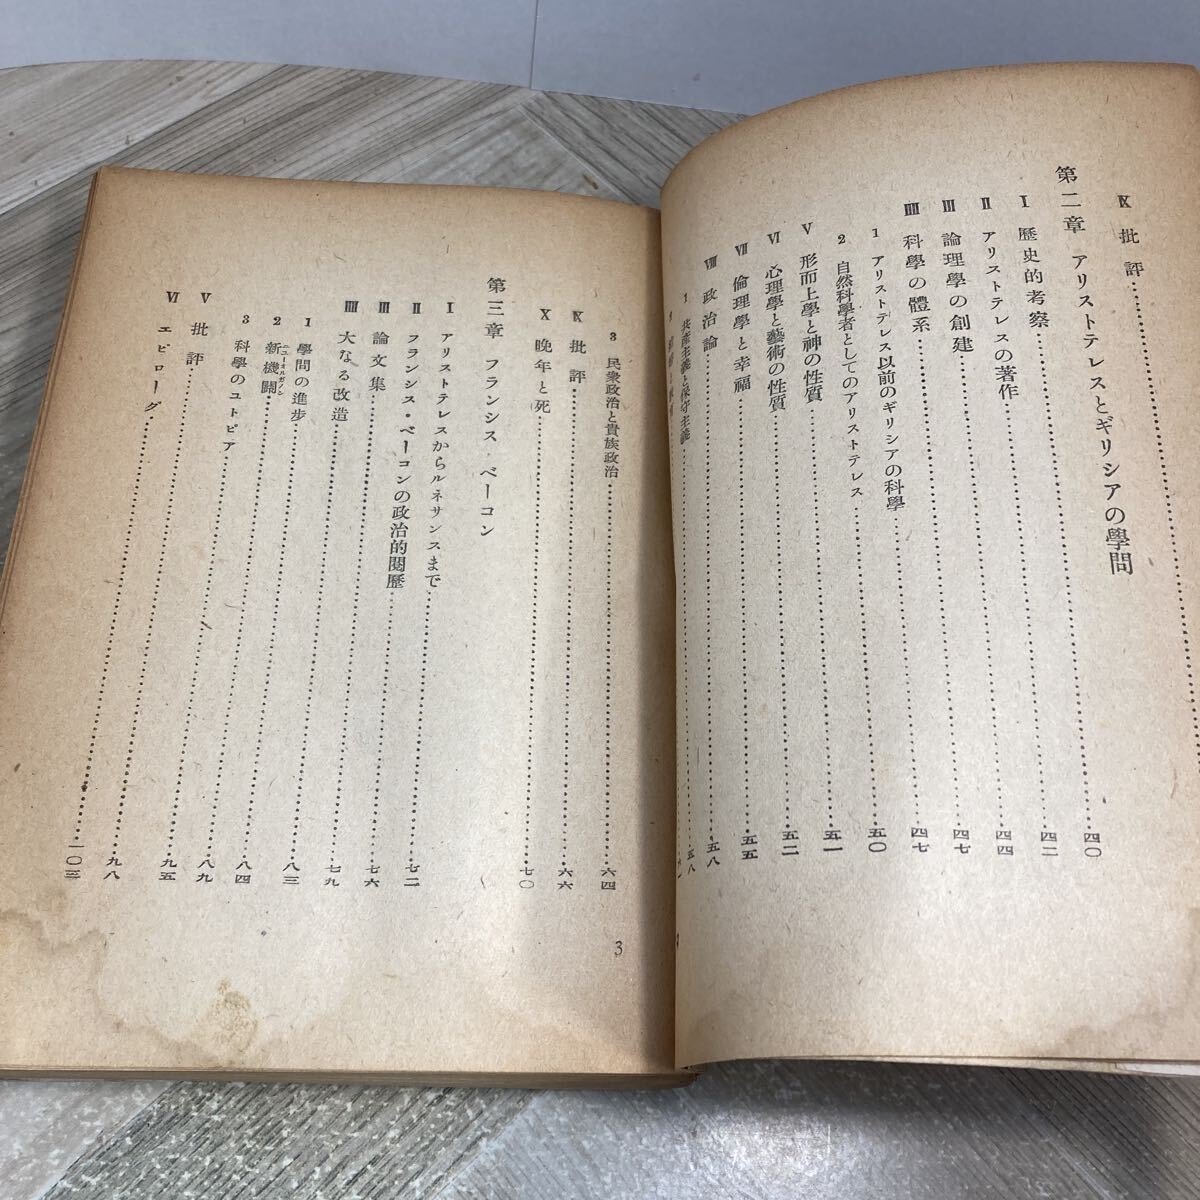 Ⅸ 批評
第二章 アリストテレスとギリシアの學問
Ⅰ 歷史的考察……四〇
Ⅱ アリストテレスの著作……四二
Ⅲ 論理學の創建……四四
IIII 科學の體系……四七
1 アリストテレス以前のギリシアの科學……四七
2 自然科學者としてのアリストテレス……五〇
Ⅴ 形而上學と神の性質……五一
Ⅵ 心理學と藝術の性質……五二
Ⅶ 倫理學と幸福……五五
Ⅷ 政治論……五八
1 共産主義と保守主義……五八
3 民衆政治と貴族政治……六四
Ⅸ 批評……六六
Ⅹ 晩年と死……七〇
第三章 フランシス・ベーコン
Ⅰ アリストテレスからルネサンスまで……七二
Ⅱ フランシス・ベーコンの政治的閱歷……七六
Ⅲ 論文集……七九
IIII 大なる改造……八三
1 學問の進步……八四
2 新機關ニューオルガノン……八九
3 科學のユトピア……九五
Ⅴ 批評……九八
Ⅵ エピローグ……一〇三
3